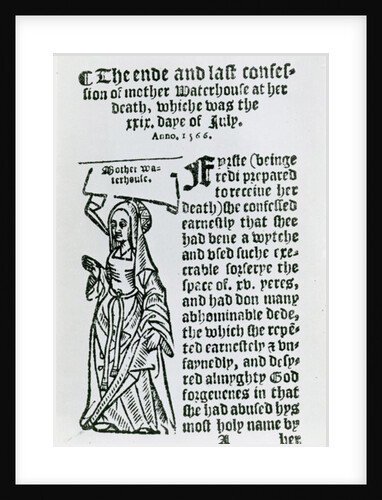 ¶ The ende and last confes-
sion of mother Waterhouse at her
death, whiche was the
xxix. daye of July.
Anno. 1566.
Mother wa-
terhouse.
Fyrste (beinge
redi prepared
to receiue her
death) she confessed
earnestly that shee
had bene a wytche
and vsed suche exe-
crable sorserye the
space of. xv. yeres,
and had don many
abhominable dede,
the which she repē-
ted earnestely & vn-
faynedly, and desy-
red almyghty God
forgeuenes in that
she had abused hys
most holy name by
A her